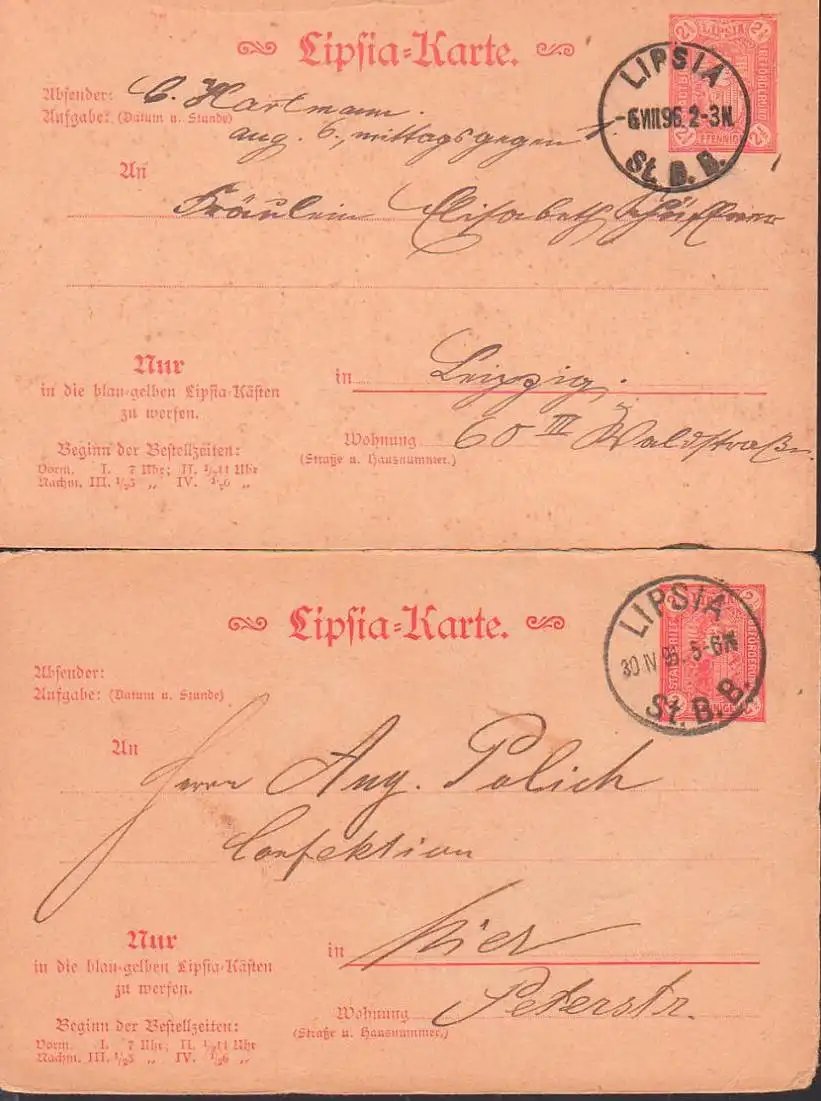 Lipsia-Karte.
Absender: C. Hartmann
Aufgabe: (Datum u. Stunde) aug. 6., mittags gegen 1
LIPSIA
-6 VIII 96. 2-3 N.
St. B. B.
2½ LIPSIA 2½
PFENNIG
An
Fräulein Elisabeth
Nur
in die blau-gelben Lipsia-Kästen
zu werfen.
in Leipzig.
Beginn der Bestellzeiten:
Vorm. I. 7 Uhr; II. ½11 Uhr
Nachm. III. ½3 „ IV. ½6 „
Wohnung 60 III Waldstraße
(Straße u. Hausnummer.)
Lipsia-Karte.
Absender:
Aufgabe: (Datum u. Stunde)
LIPSIA
30 IV 96. 5-6 N
St. B. B.
An
Herrn Aug. Polich
Confektion
Nur
in die blau-gelben Lipsia-Kästen
zu werfen.
in hier
Beginn der Bestellzeiten:
Vorm. I. 7 Uhr; II. ½11 Uhr
Nachm. III. ½3 „ IV. ½6 „
Wohnung Peterstr.
(Straße u. Hausnummer.)